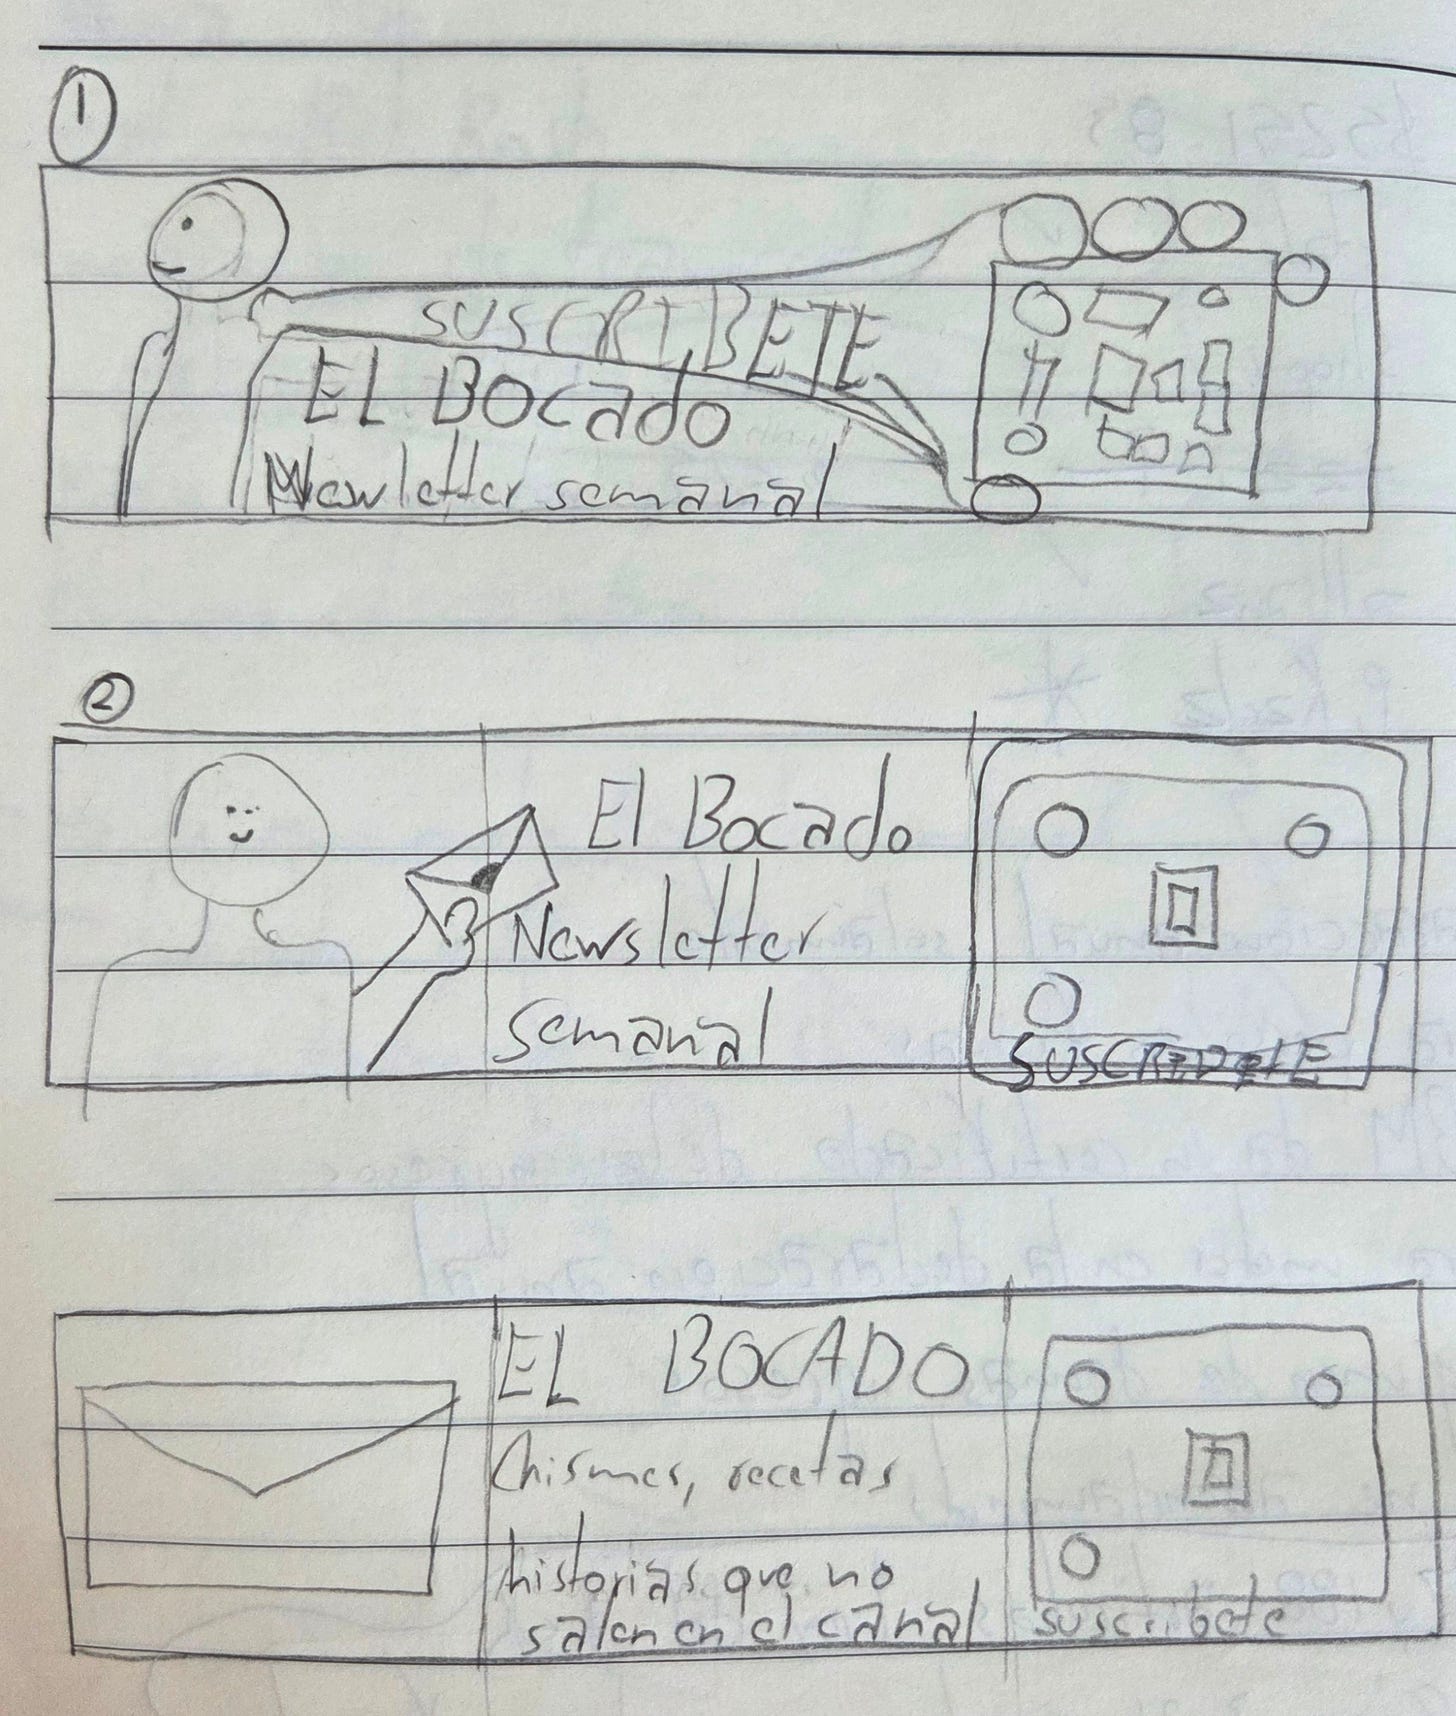 1
SUSCRIBETE
EL Bocado
Newsletter semanal
2
El Bocado
Newsletter
semanal
SUSCRIBETE
EL BOCADO
Chismes, recetas
historias que no
salen en el canal
suscribete